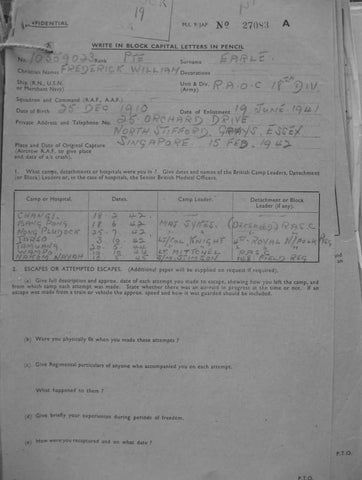 19
FIDENTIAL
M.I. 9/JAP No 27083 A
WRITE IN BLOCK CAPITAL LETTERS IN PENCIL
No. 10559023 Rank PTE Surname EARLE
Christian Names FREDERICK WILLIAM Decorations
Ship (R.N., U.S.N. or Merchant Navy) Unit & Div. (Army) R.A.O.C 18TH DIV.
Squadron and Command (R.A.F., A.A.F.)
Date of Birth 25 DEC 1910 Date of Enlistment 19 JUNE 1941
Private Address and Telephone No. 26 ORCHARD DRIVE
NORTH STIFFORD, GRAYS, ESSEX
Place and Date of Original Capture SINGAPORE 15 FEB. 1942
(Aircrew R.A.F. to give place and date of a/c crash)
1. What camps, detachments or hospitals were you in? Give dates and names of the British Camp Leaders, Detachment (or Block) Leaders or, in the case of hospitals, the Senior British Medical Officers.
Camp or Hospital. Dates. Camp Leader. Detachment or Block Leader (if any).
CHANGI 18 2 42
BANG PONG 18 6 42 MAJ SYKES (Deceased) R.A.S.C
NONG PLADOCK 25 42
TARSO 3 42 LT/COL KNIGHT 4TH ROYAL N/FOLK REG
TAMUANG 20 5 44
CHUNGKAI LT
NAKOM 45 S/M 148 FIELD REG
2. ESCAPES OR ATTEMPTED ESCAPES. (Additional paper will be supplied on request if required).
(a) Give full description and approx. date of each attempt you made to escape, showing how you left the camp, and from which camp each attempt was made. State whether there was an air-raid in progress at the time or not. If an escape was made from a train or vehicle the approx. speed and how it was guarded should be included.
(b) Were you physically fit when you made these attempts?
(c) Give Regimental particulars of anyone who accompanied you on each attempt.
What happened to them?
(d) Give briefly your experiences during periods of freedom.
(e) How were you recaptured and on what date?
P.T.O.
P.T.O.